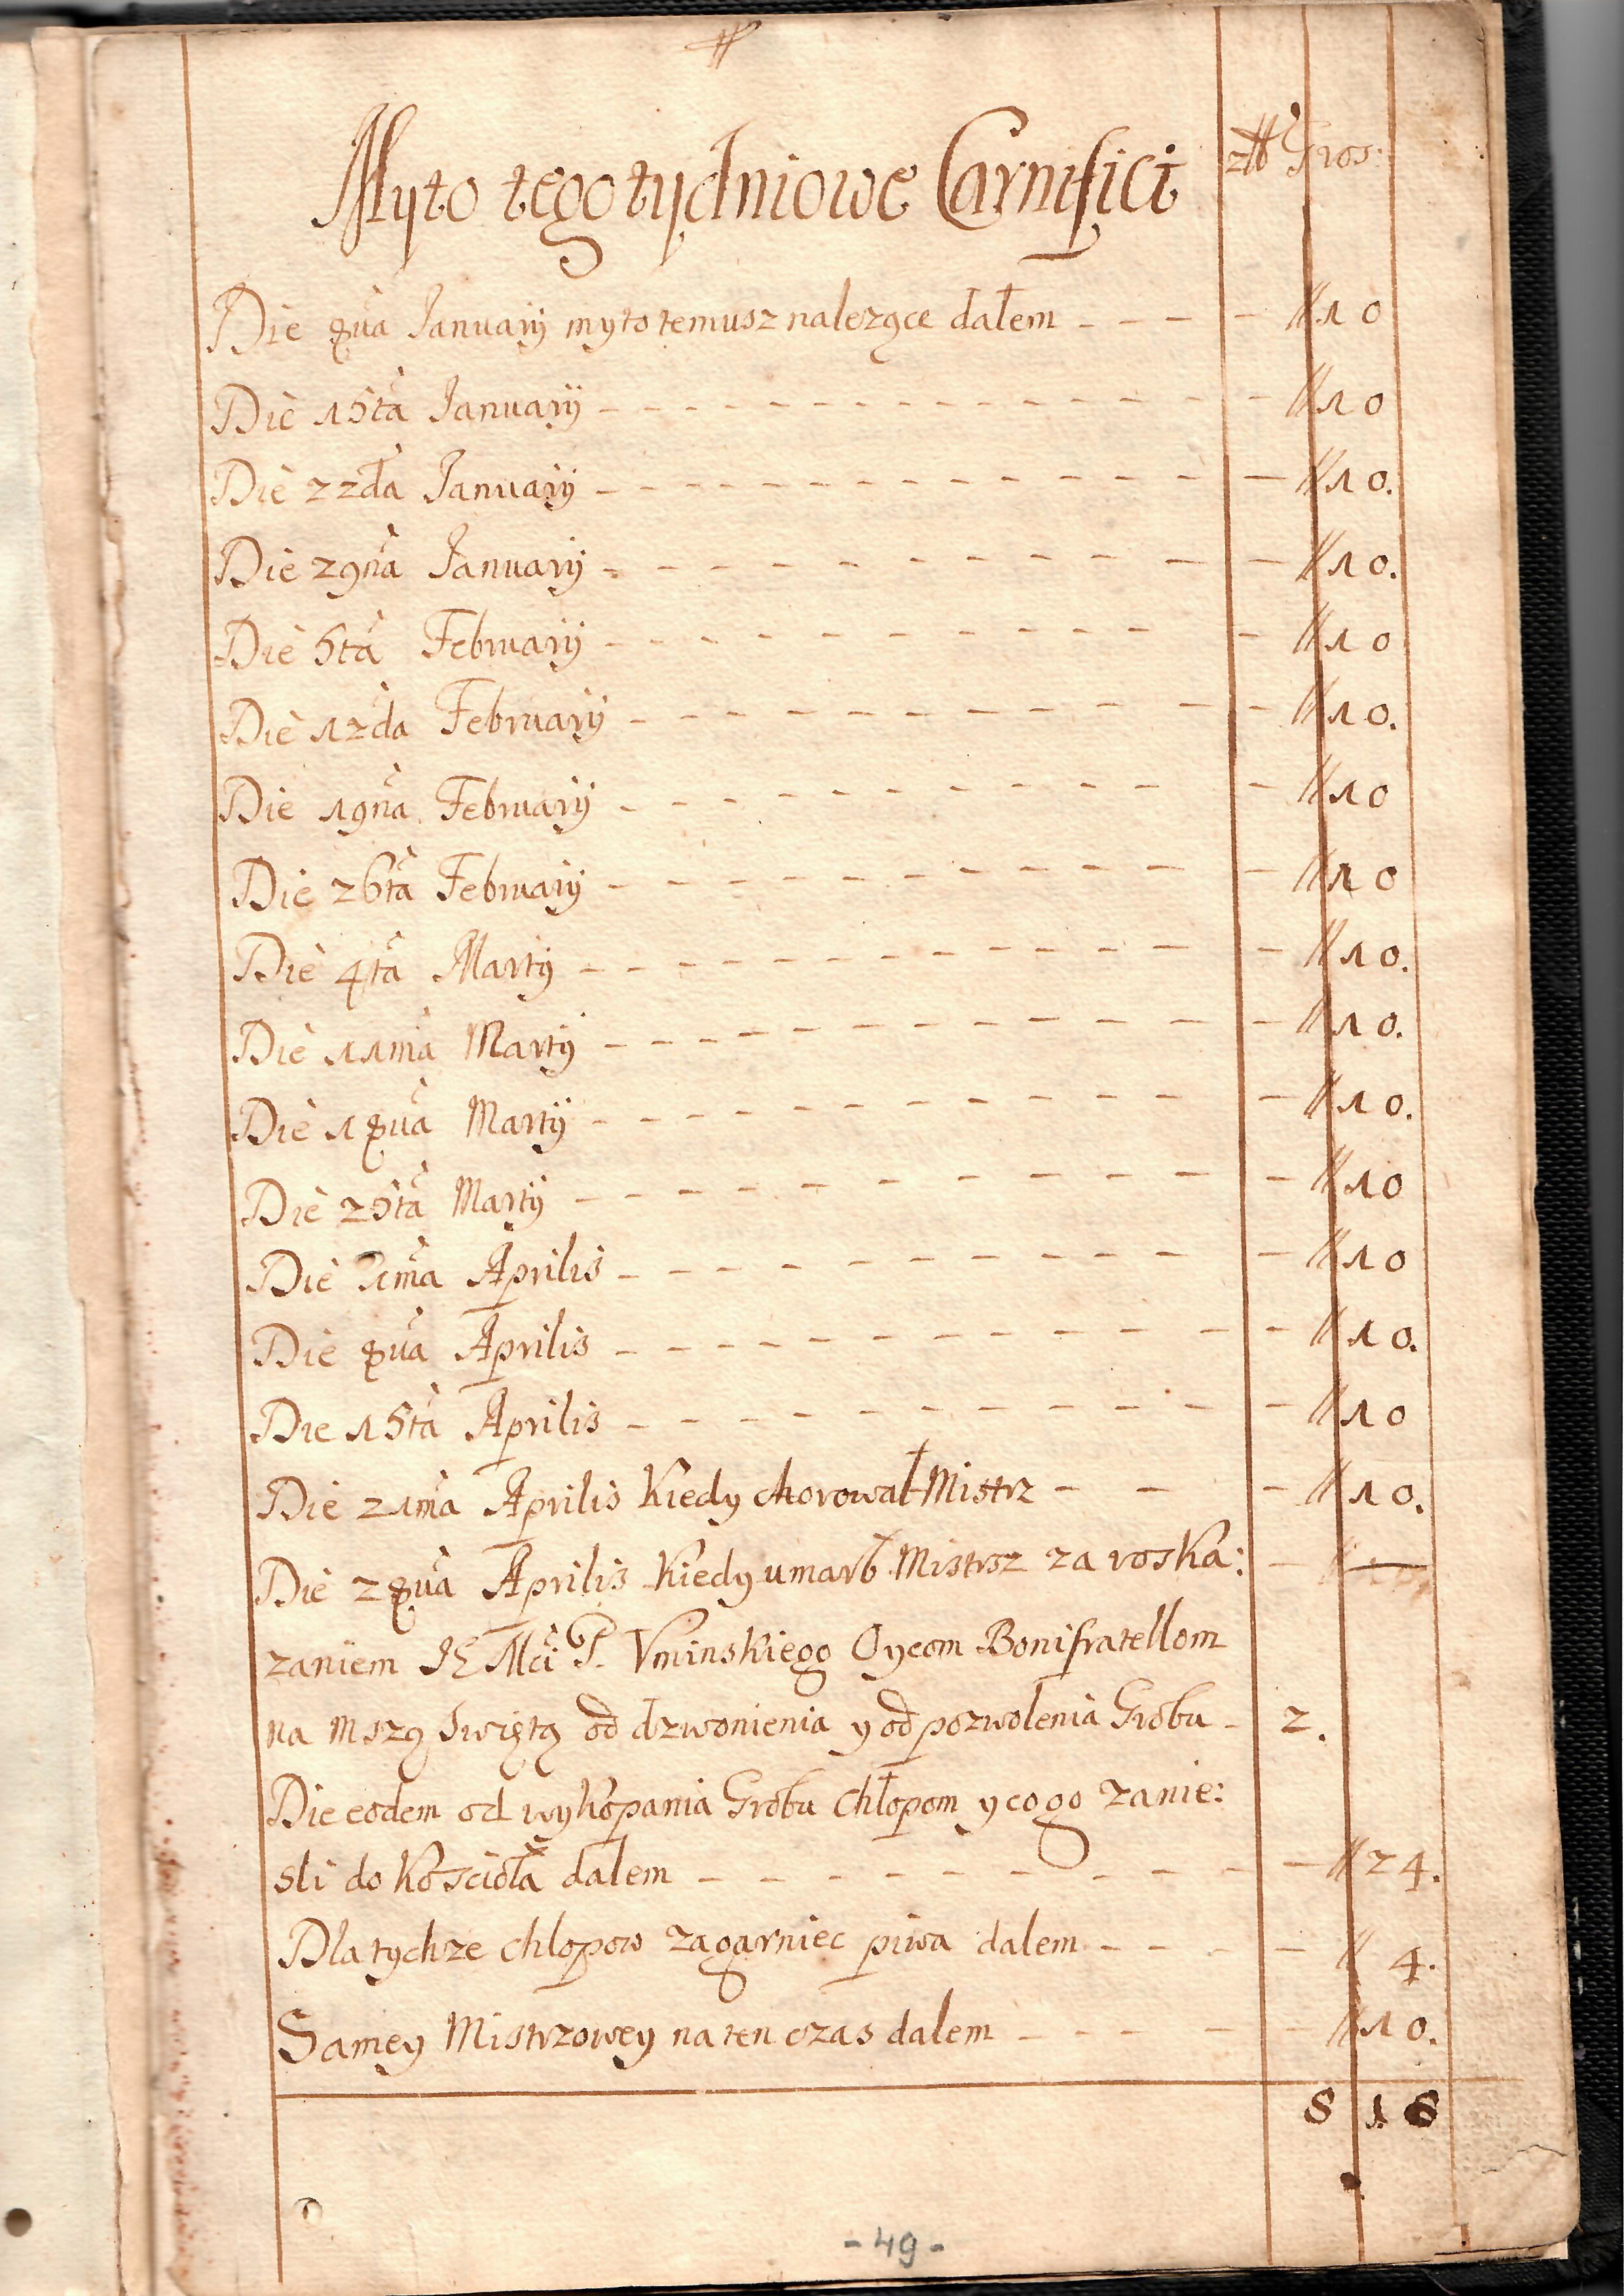 Myto tegotydniowe Carnifici
złł Gros:
Die 8va Ianuarij myto temusz nalezące dałem - - - - - // 10
Die 15ta Ianuarij - - - - - // 10
Die 22da Ianuarij - - - - - // 10.
Die 29na Ianuarij - - - - - // 10.
Die 5ta Februarij - - - - - // 10
Die 12da Februarij - - - - - // 10.
Die 19na Februarij - - - - - // 10
Die 26ta Februarij - - - - - // 10
Die 4ta Martij - - - - - // 10.
Die 11ma Martij - - - - - // 10.
Die 18va Martij - - - - - // 10.
Die 25ta Martij - - - - - // 10
Die 1ma Aprilis - - - - - // 10
Die 8va Aprilis - - - - - // 10.
Die 15ta Aprilis - - - - - // 10
Die 21ma Aprilis Kiedy chorował Mistrz - - - // 10.
Die 28va Aprilis Kiedy umarł Mistrsz za roska:
zaniem JE Mci P. Vminskiego Oycom Bonifratellom
na Mszą swiętą od dzwonienia y od pozwolenia Grobu - 2.
Die eodem od wykopania Grobu chłopom y co go zanie:
sli do Koscioła dalem - - - - - // 24.
Dla tychze chlopow za garniec piwa dalem - - - - // 4.
Samey Mistrzowey na ten czas dalem - - - - // 10.
8 18
- 49 -